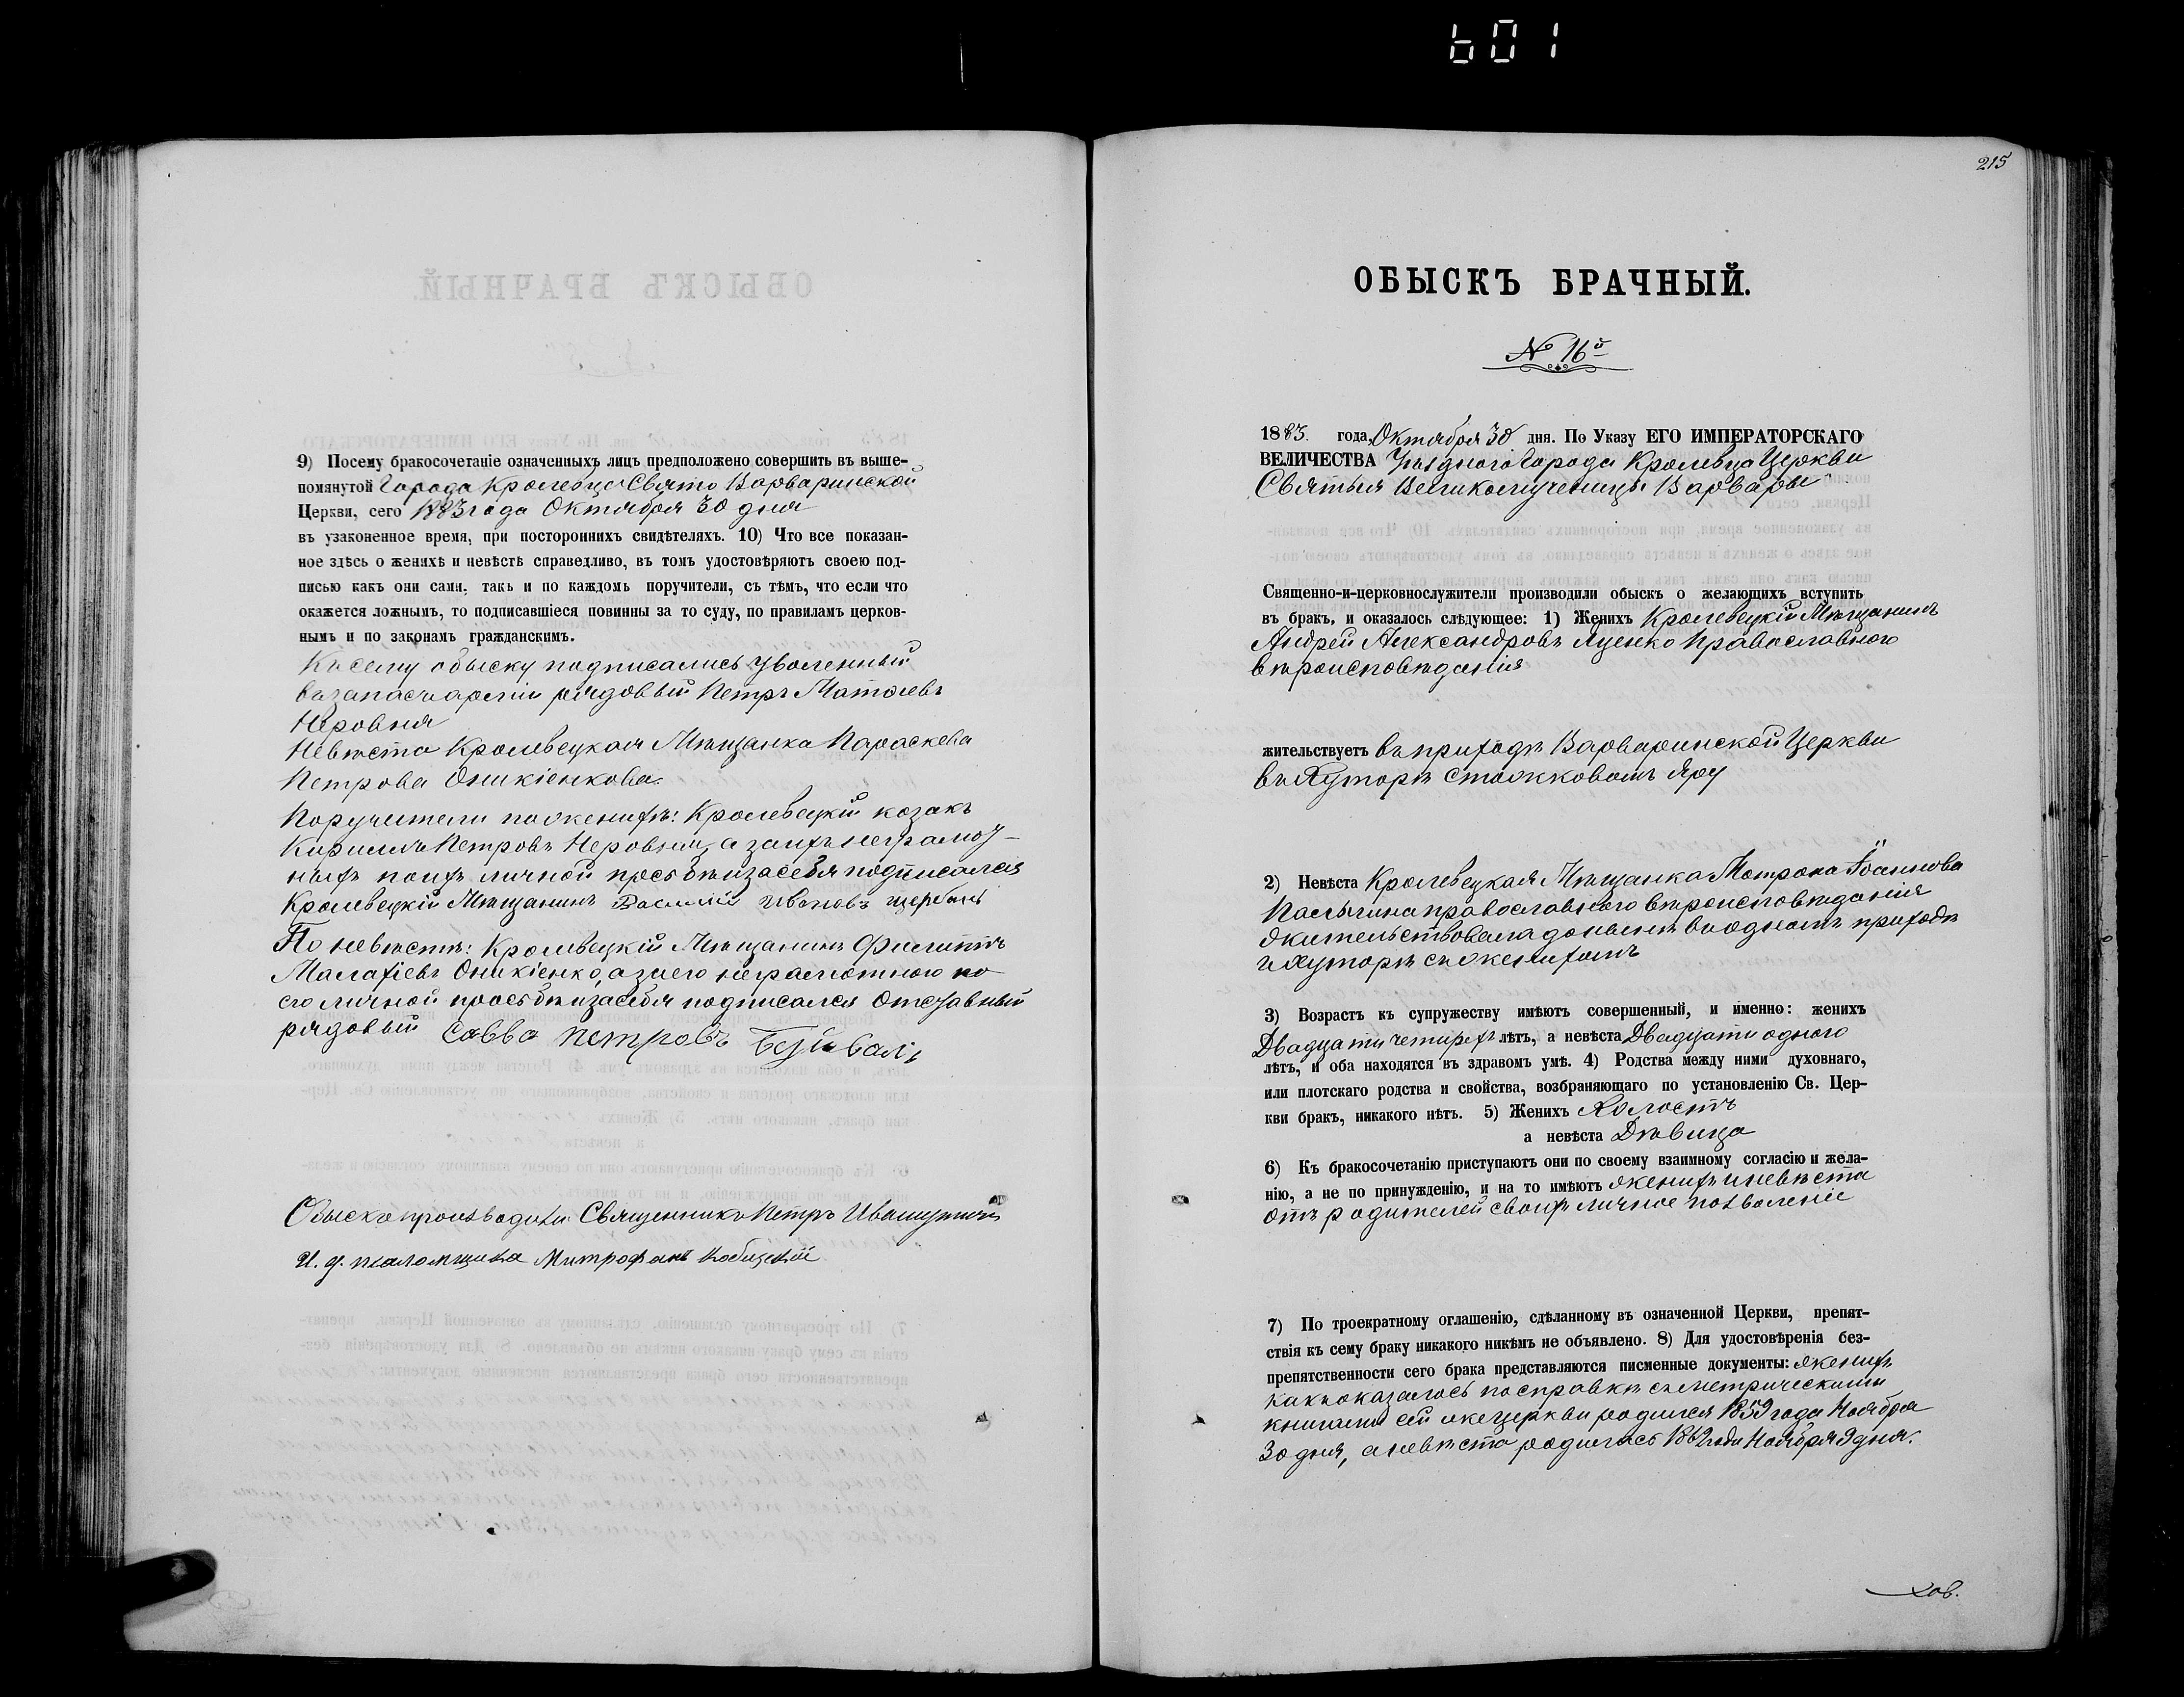 601
9) Посему бракосочетаніе означенныхъ лицъ предположено совершить въ выше-
помянутой Города Кролевца Свято Варваринской
Церкви, сего 1883 года Октября 30 дня
въ узаконенное время, при постороннихъ свидѣтеляхъ. 10) Что все показан-
ное здѣсь о женихѣ и невѣстѣ справедливо, въ томъ удостовѣряютъ своею под-
писью какъ они сами, такъ и по каждомъ поручители, съ тѣмъ, что если что
окажется ложнымъ, то подписавшіеся повинны за то суду, по правиламъ церков-
нымъ и по законамъ гражданскимъ.
Къ сему обыску подписались уволенный
въ запасъ арміи рядовый Петръ Матвіевъ
Неровня
Невѣста Кролевецкая Мѣщанка Параскева
Петрова Оникіенкова.
Поручители по женихѣ: Кролевецкій козакъ
Кириллъ Петровъ Неровня, а за ихъ неграмот-
ныхъ по ихъ личной просьбѣ и за себя подписался
Кролевецкій Мѣщанинъ Василій Ивановъ Щербакъ
По невѣстѣ: Кролевецкій Мѣщанинъ Филиппъ
Малахіевъ Оникіенко, а за его неграмотного по
его личной просьбѣ и за себя подписался Отставный
рядовый Савва Петровъ
Обыскъ производили: Священникъ Петръ Ивашутичъ
И. д. псаломщика Митрофанъ
215
ОБЫСКЪ БРАЧНЫЙ.
№ 16й
1883. года, Октября 30 дня. По Указу ЕГО ИМПЕРАТОРСКАГО
ВЕЛИЧЕСТВА Уѣзднаго Города Кролевца Церкви
Святыя Великомученицы Варвары
Священно-и-церковнослужители производили обыскъ о желающихъ вступить
въ бракъ, и оказалось слѣдующее: 1) Женихъ Кролевецкій Мѣщанинъ
Андрей Александровъ Яценко Православного
вѣроисповѣданія
жительствуетъ въ приходѣ Варваринской Церкви
въ Хуторѣ Стожковомъ Яру
2) Невѣста Кролевецкая Мѣщанка Мотрона Іоаннова
Пальчина православного вѣроисповѣданія
жительствовала донынѣ въ одномъ приходѣ
и хуторѣ съ женихомъ
3) Возрастъ къ супружеству имѣютъ совершенный, и именно: женихъ
Двадцати четирехъ лѣтъ, а невѣста Двадцати одного
лѣтъ, и оба находятся въ здравомъ умѣ. 4) Родства между ними духовнаго,
или плотскаго родства и свойства, возбраняющаго по установленію Св. Цер-
кви бракъ, никакого нѣтъ. 5) Женихъ Холостъ
а невѣста Дѣвица
6) Къ бракосочетанію приступаютъ они по своему взаимному согласію и жела-
нію, а не по принужденію, и на то имѣютъ женихъ и невѣста
отъ родителей своихъ личное позволеніе
7) По троекратному оглашенію, сдѣланному въ означенной Церкви, препят-
ствія къ сему браку никакого никѣмъ не объявлено. 8) Для удостовѣренія без-
препятственности сего брака представляются писменные документы: женихъ
какъ оказалось по справкѣ съ метрическими
книгами сей же церкви родился 1859 года Ноября
30 дня, а невѣста родилась 1862 года Ноября 9 дня.